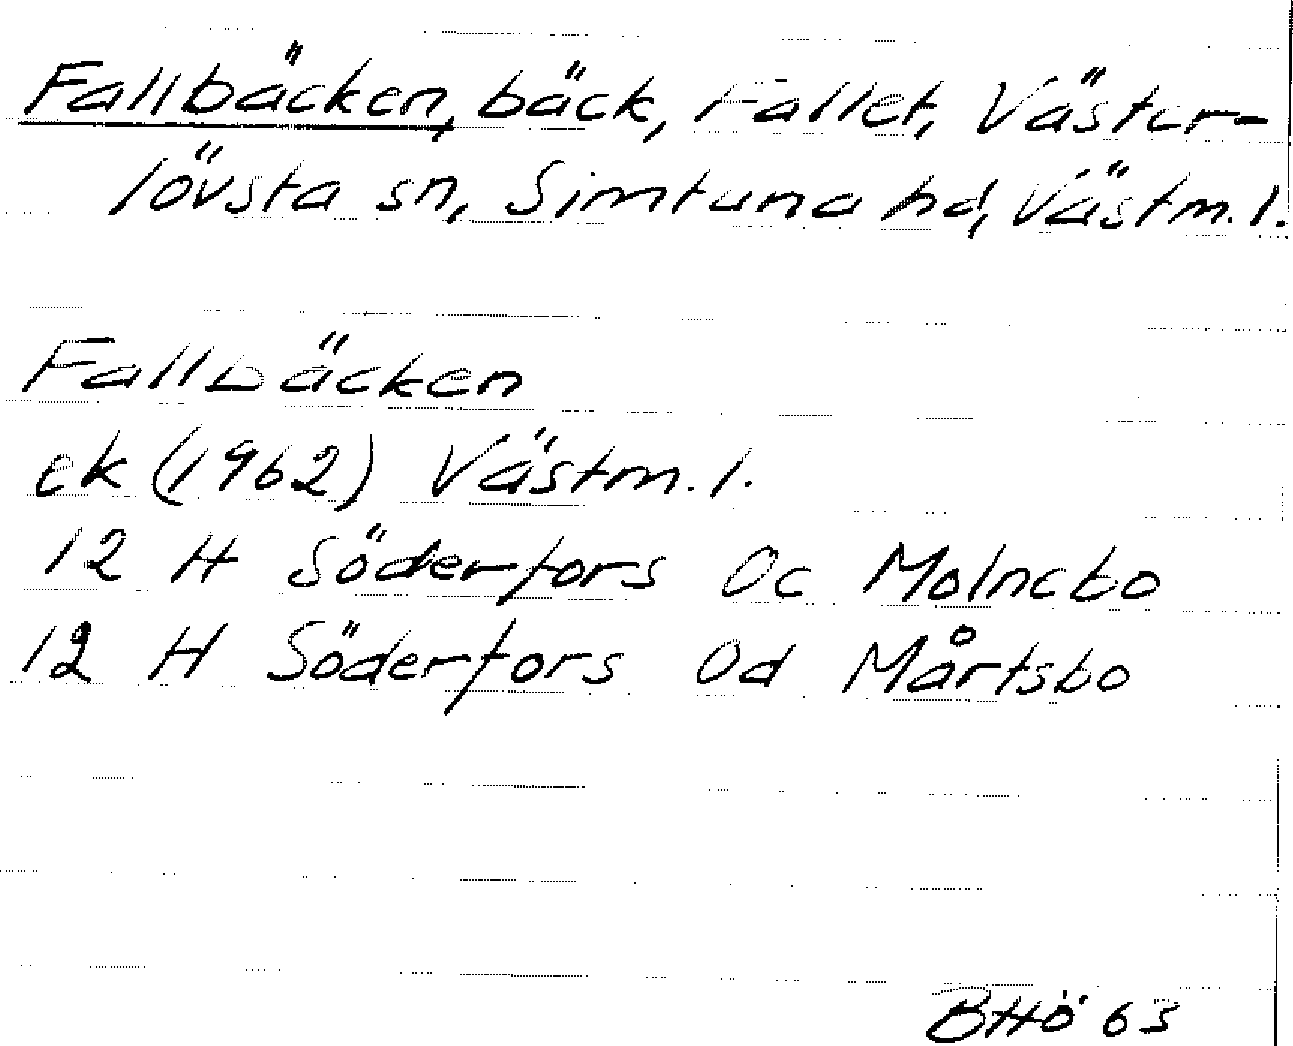 Fallbäcken, bäck, Fallet, Väster-
lövsta sn, Simtuna hd, Västm. l.
Fallbäcken
ek (1962) Västm. l.
12 H Söderfors 0c Molnebo
12 H Söderfors 0d Mårtsbo
BHÖ 63